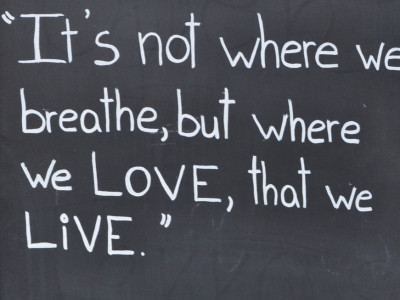 “It's not where we
breathe, but where
we LOVE, that we
LiVE.”